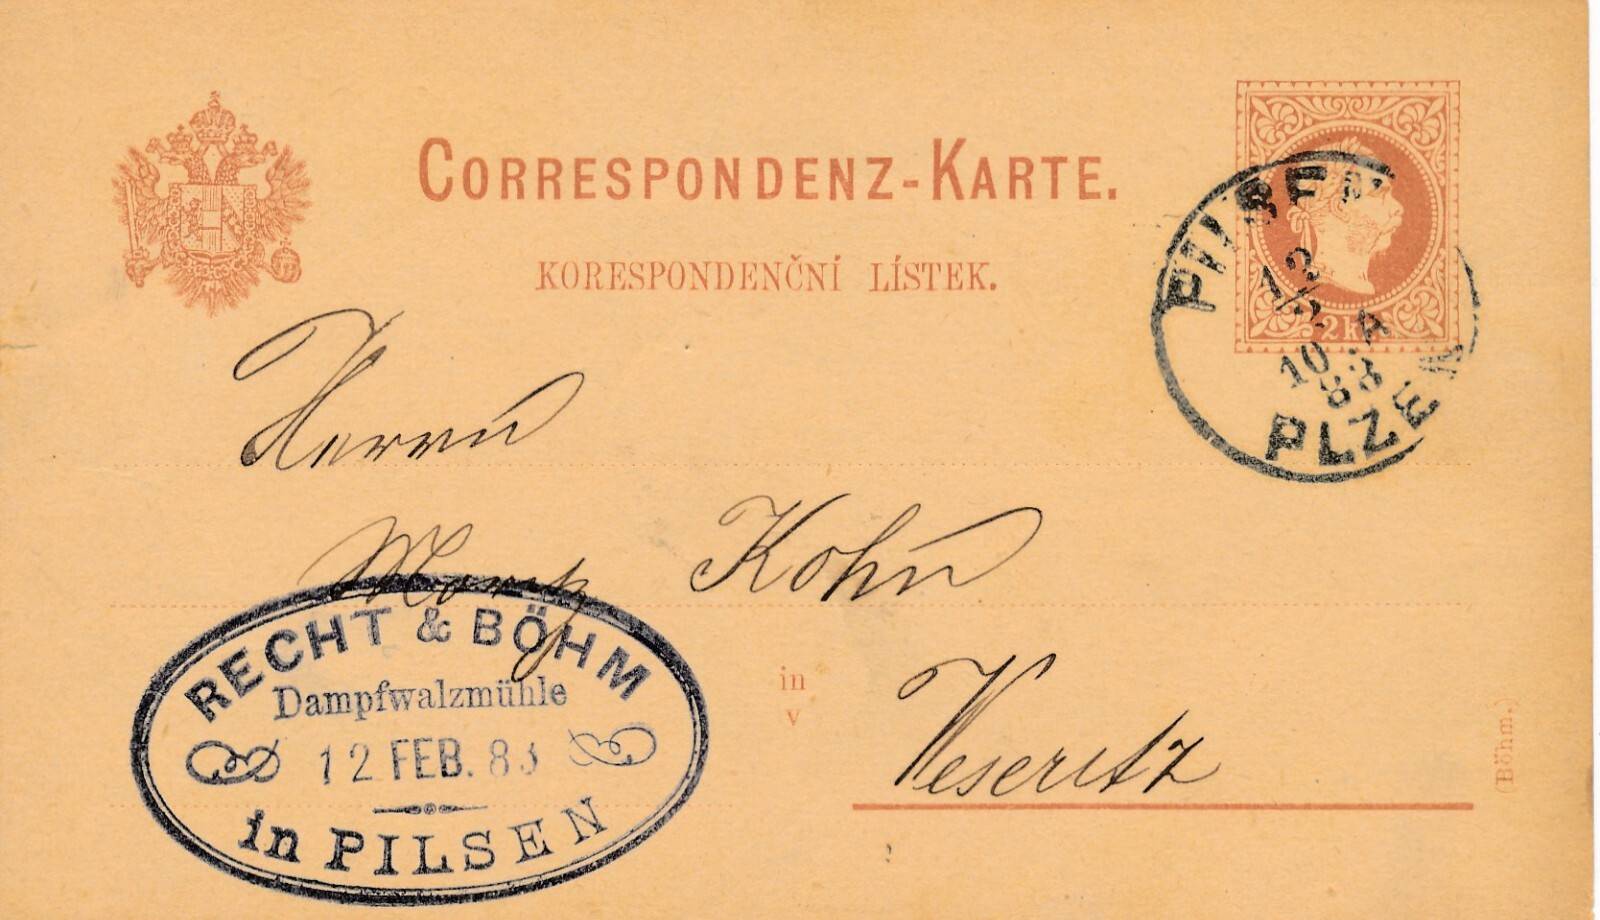 CORRESPONDENZ-KARTE.
KORESPONDENČNÍ LÍSTEK.
2 kr.
PILSEN
12/2
10 A
83
PLZEŇ
Herrn
Moritz Kohn
in
v
Weseritz
(Böhm.)
RECHT & BÖHM
Dampfwalzmühle
12 FEB. 83
in PILSEN